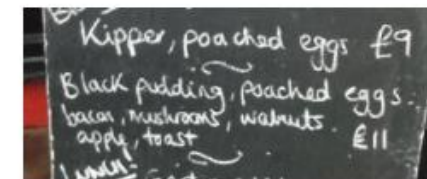 Kipper, poached eggs £9
Black pudding, poached eggs.
bacon, mushrooms, walnuts.
apple, toast £11
LUNCH: